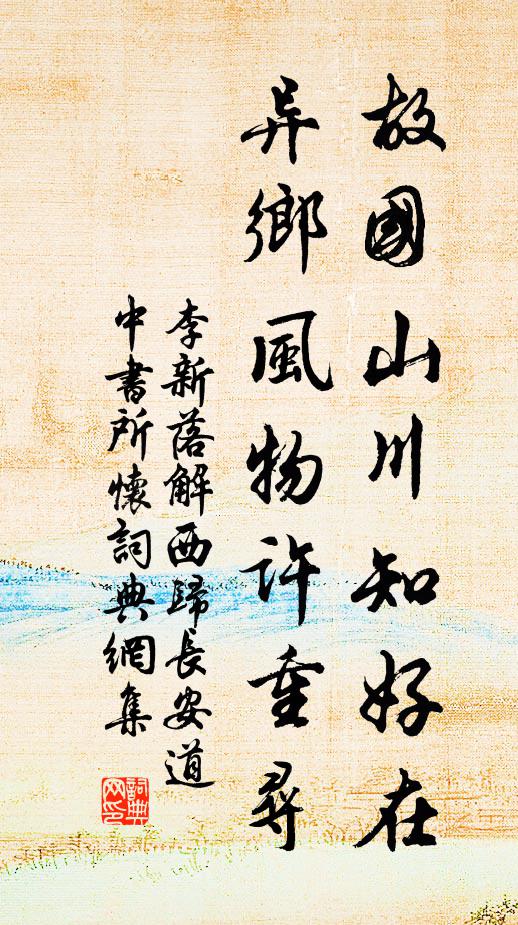 故國山川知好在
异鄉風物許重尋
李新落解西歸長安道
中書所懷詞典網集
詞典網印